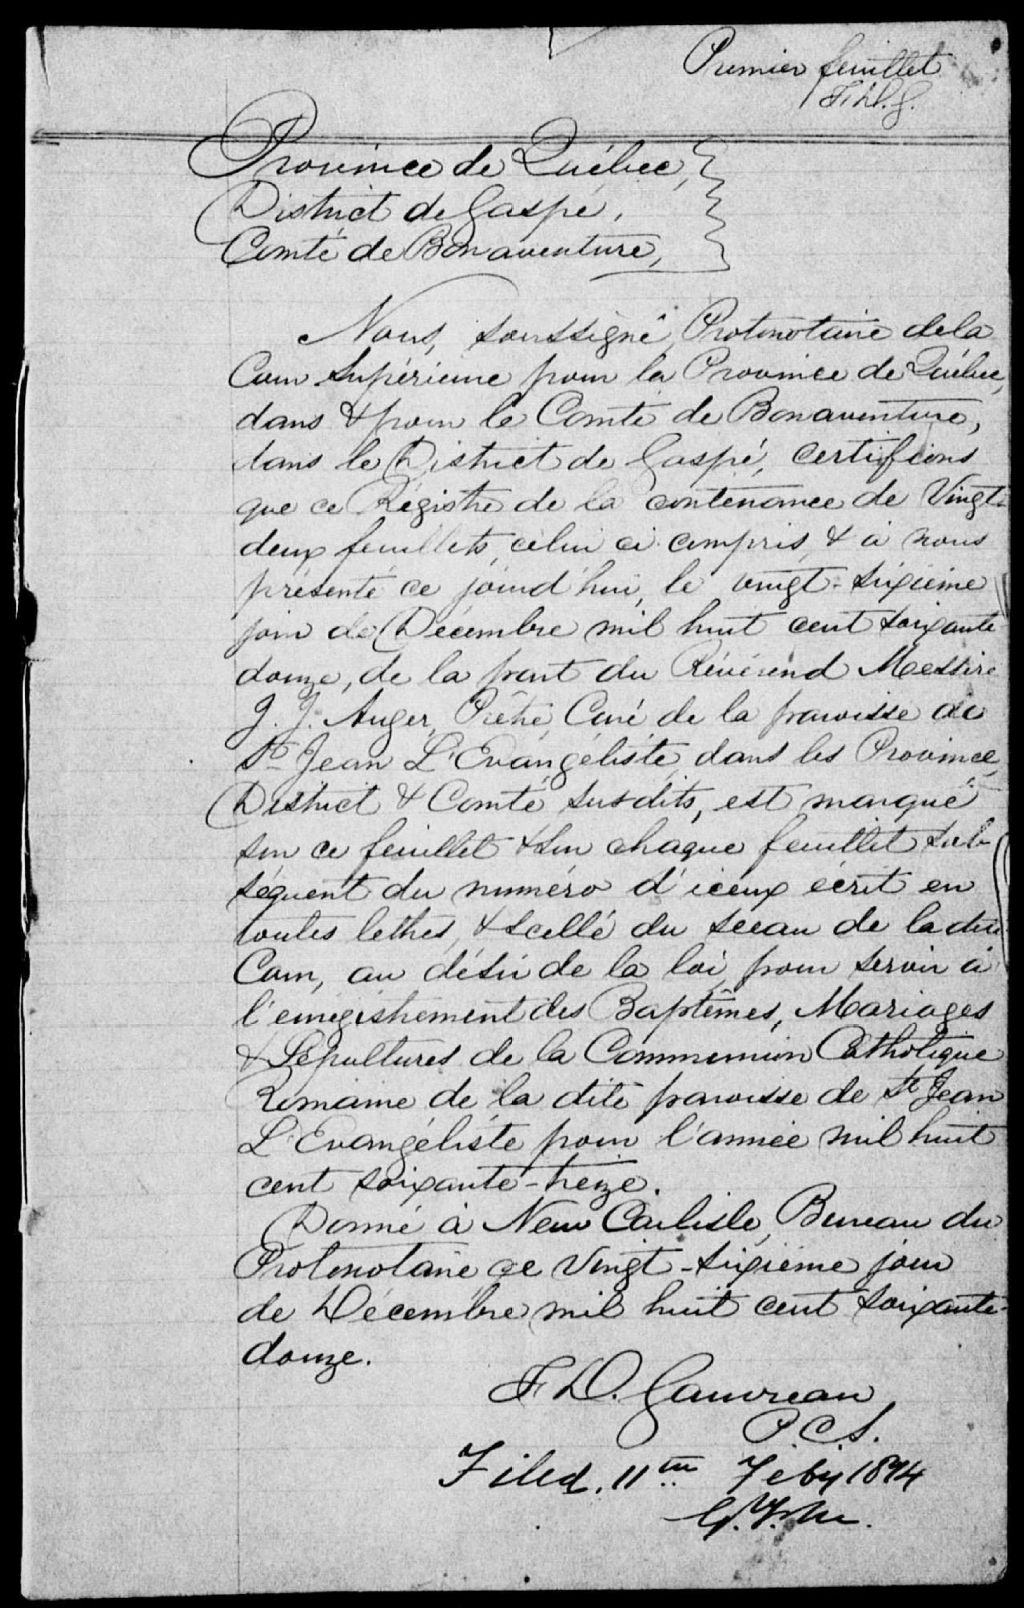 Premier feuillet
F.D.G.
Province de Québec,
District de Gaspé,
Comté de Bonaventure,
Nous, soussigné, Protonotaire de la
Cour Supérieure pour la Province de Québec,
dans & pour le Comté de Bonaventure,
dans le District de Gaspé, certifions
que ce Régistre de la contenance de Vingt-
deux feuillets, celui ci compris, & à nous
présenté ce jourd'hui, le vingt-sixième
jour de Décembre mil huit cent soixante
douze, de la part du Révérend Messire
J. J. Auger, Prêtre, Curé de la paroisse de
St Jean L'Evangéliste, dans les Province,
District & Comté susdits, est marqué
sur ce feuillet & sur chaque feuillet sub-
séquent du numéro d'iceux écrit en
toutes lettres, & scellé du sceau de la dite
Cour, au désir de la loi, pour servir à
l'enrégistrement des Baptêmes, Mariages
& Sépultures de la Communion Catholique
Romaine de la dite paroisse de St Jean
L'Evangéliste pour l'année mil huit
cent soixante-treize.
Donné à New Carlisle, Bureau du
Protonotaire ce Vingt-sixième jour
de Décembre mil huit cent soixante-
douze.
F. D. Gauvreau
P.C.S.
Filed. 11th Feby 1874